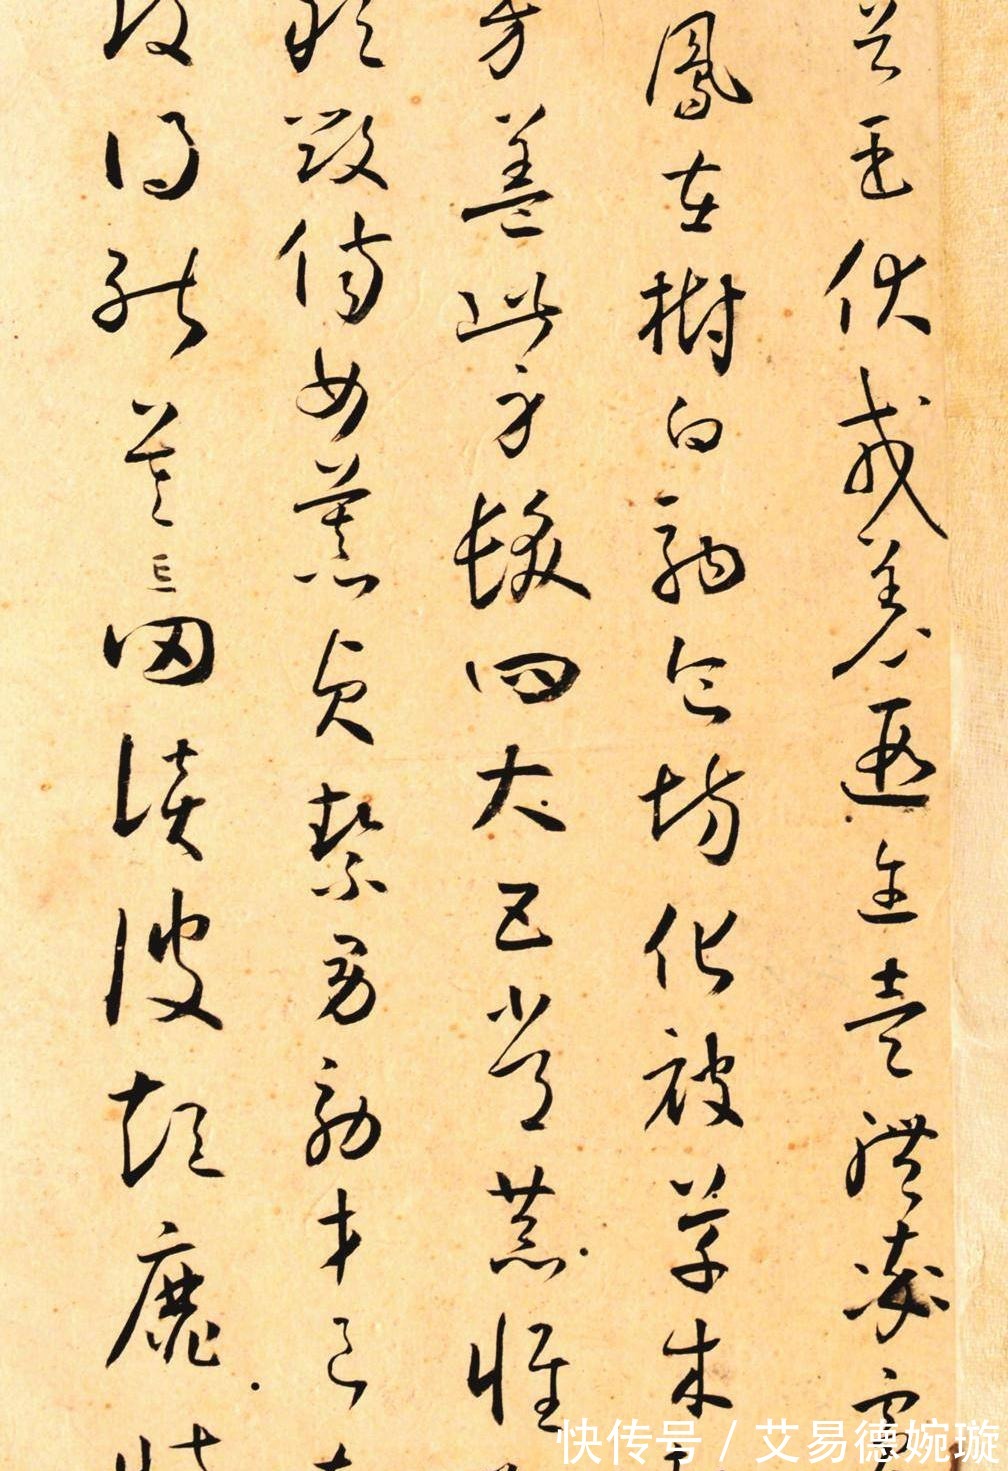 首臣伏戎羌遐邇壹體率賓
鳳在樹白駒食場化被草木
方蓋此身髮四大五常恭惟
敢毀傷女慕貞絜男效才良
改得能莫忘罔談彼短靡恃
快传号 / 艾易德婉璇